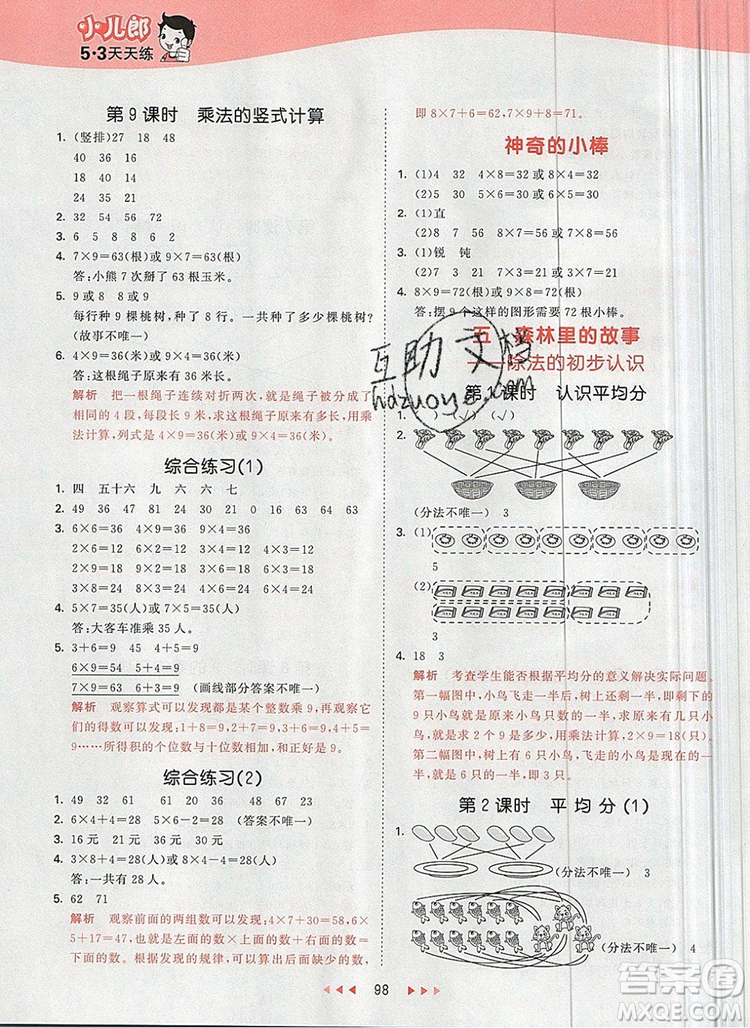 小儿郎
5·3天天练
第9课时 乘法的竖式计算
1. (竖排)27 18 48
40 36 16
18 14 40
24 35 21
2. 32 54 56 72
3. 6 5 8 8 6 2
4. 7×9=63(根)或9×7=63(根)
答:小熊7次掰了63根玉米。
5. 9或8 8或9
每行种9棵桃树,种了8行。一共种了多少棵桃树?
(故事不唯一)
6. 4×9=36(米)或9×4=36(米)
答:这根绳子原来长36米。
解析 把一根绳子连续对折两次,就是绳子被分成了
相同的4段,每段长9米,求这根绳子原来长多少,用乘
法计算,列式是4×9=36(米)或9×4=36(米)。
综合练习(1)
1. 四 五十六 九 六 六 七
2. 49 36 47 81 24 30 21 0 16 63 64 24
3. 6×6=36 4×9=36 9×4=36
2×6=12 6×2=12 3×4=12 4×3=12
2×9=18 9×2=18 3×6=18 6×3=18
3×8=24 8×3=24 4×6=24 6×4=24
4. 5×7=35(人)或7×5=35(人)
答:大客车准乘35人。
5. 3+6=9 45=5×9
6×9=54 5+4=9
7×9=63 6+3=9 (画线部分答案不唯一)
解析 观察算式可以发现都是某个整数乘9,再观察
得数可以发现规律:1+8=9,2+7=9,3+6=9,4+5=
9……所得积的个位数与十位数相加,和正好是9。
综合练习(2)
1. 49 32 61 48 6 66 52 48 67 32 23
2. 6×4+4=28 5×5+3=28 (答案不唯一)
3. 16元 30元 21元 40元
4. 3×8+4=28(人)或4×8-4=28(人)
答:一共有28人。
5. 62 71
解析 观察前面的两组数可以发现:4×7+30=58,6×
5+17=47,也就是左面的数×上面的数+下面的数=
右面的数。根据发现的规律,可求得第三组右面的数,
即8×7+6=62。也可以这样发现:4×7×2+2=58,
即8×7+6+9=71。
神奇的小棒
1. (1)4 32 4×8=32或8×4=32
(2)5 30 5×6=30或6×5=30
2. (1)直
(2)7 8 7×8=56或8×7=56
3. (1)锐 钝
4. 8×9=72(根)或9×8=72(根)
答:摆9个这样的图形需要72根小棒。
五 森林里的故事
——除法的初步认识
第1课时 认识平均分
1. ( ) (√) (√)
2.
(分法不唯一) 3
3. (1)
5
(2)
8
4. 18 3
解析 考查学生能否根据平均分的意义解决实际问题。
第一幅图中,小鸟飞走一半后,树上还剩一半,剩下的
9只小鸟就是原来小鸟只数的一半。求原来有几只小
鸟,就是求2个9只是多少,用乘法计算,2×9=18(只)。
第二幅图中,树上有6只小鸟,飞走的小鸟就是6只小
鸟的一半,即3只。
第2课时 平均分(1)
1.
(分法不唯一) 3
(分法不唯一) 4
98
互助文档
hdzuoye.com
答案圈
MXQE.COM